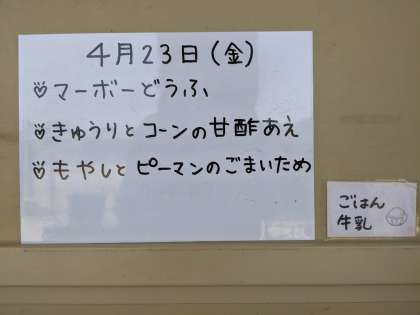 4月23日(金)
マーボーどうふ
きゅうりとコーンの甘酢あえ
もやしとピーマンのごまいため
ごはん
牛乳